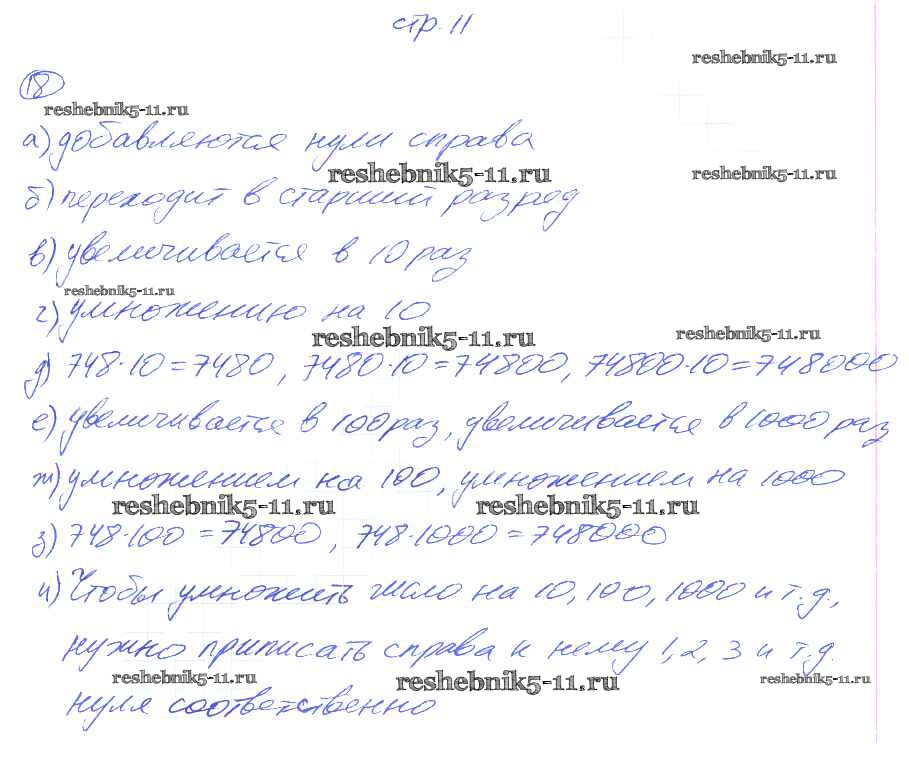 стр. 11
reshebnik5-11.ru
18
reshebnik5-11.ru
а) добавляются нули справа
reshebnik5-11.ru reshebnik5-11.ru
б) переходит в старший разряд
в) увеличивается в 10 раз
reshebnik5-11.ru
г) умножению на 10
reshebnik5-11.ru reshebnik5-11.ru
д) 748·10=7480, 7480·10=74800, 74800·10=748000
е) увеличивается в 100 раз, увеличивается в 1000 раз
ж) умножением на 100, умножением на 1000
reshebnik5-11.ru reshebnik5-11.ru
з) 748·100=74800, 748·1000=748000
и) Чтобы умножить число на 10, 100, 1000 и т.д.,
нужно приписать справа к нему 1, 2, 3 и т.д.
reshebnik5-11.ru reshebnik5-11.ru reshebnik5-11.ru
нуля соответственно